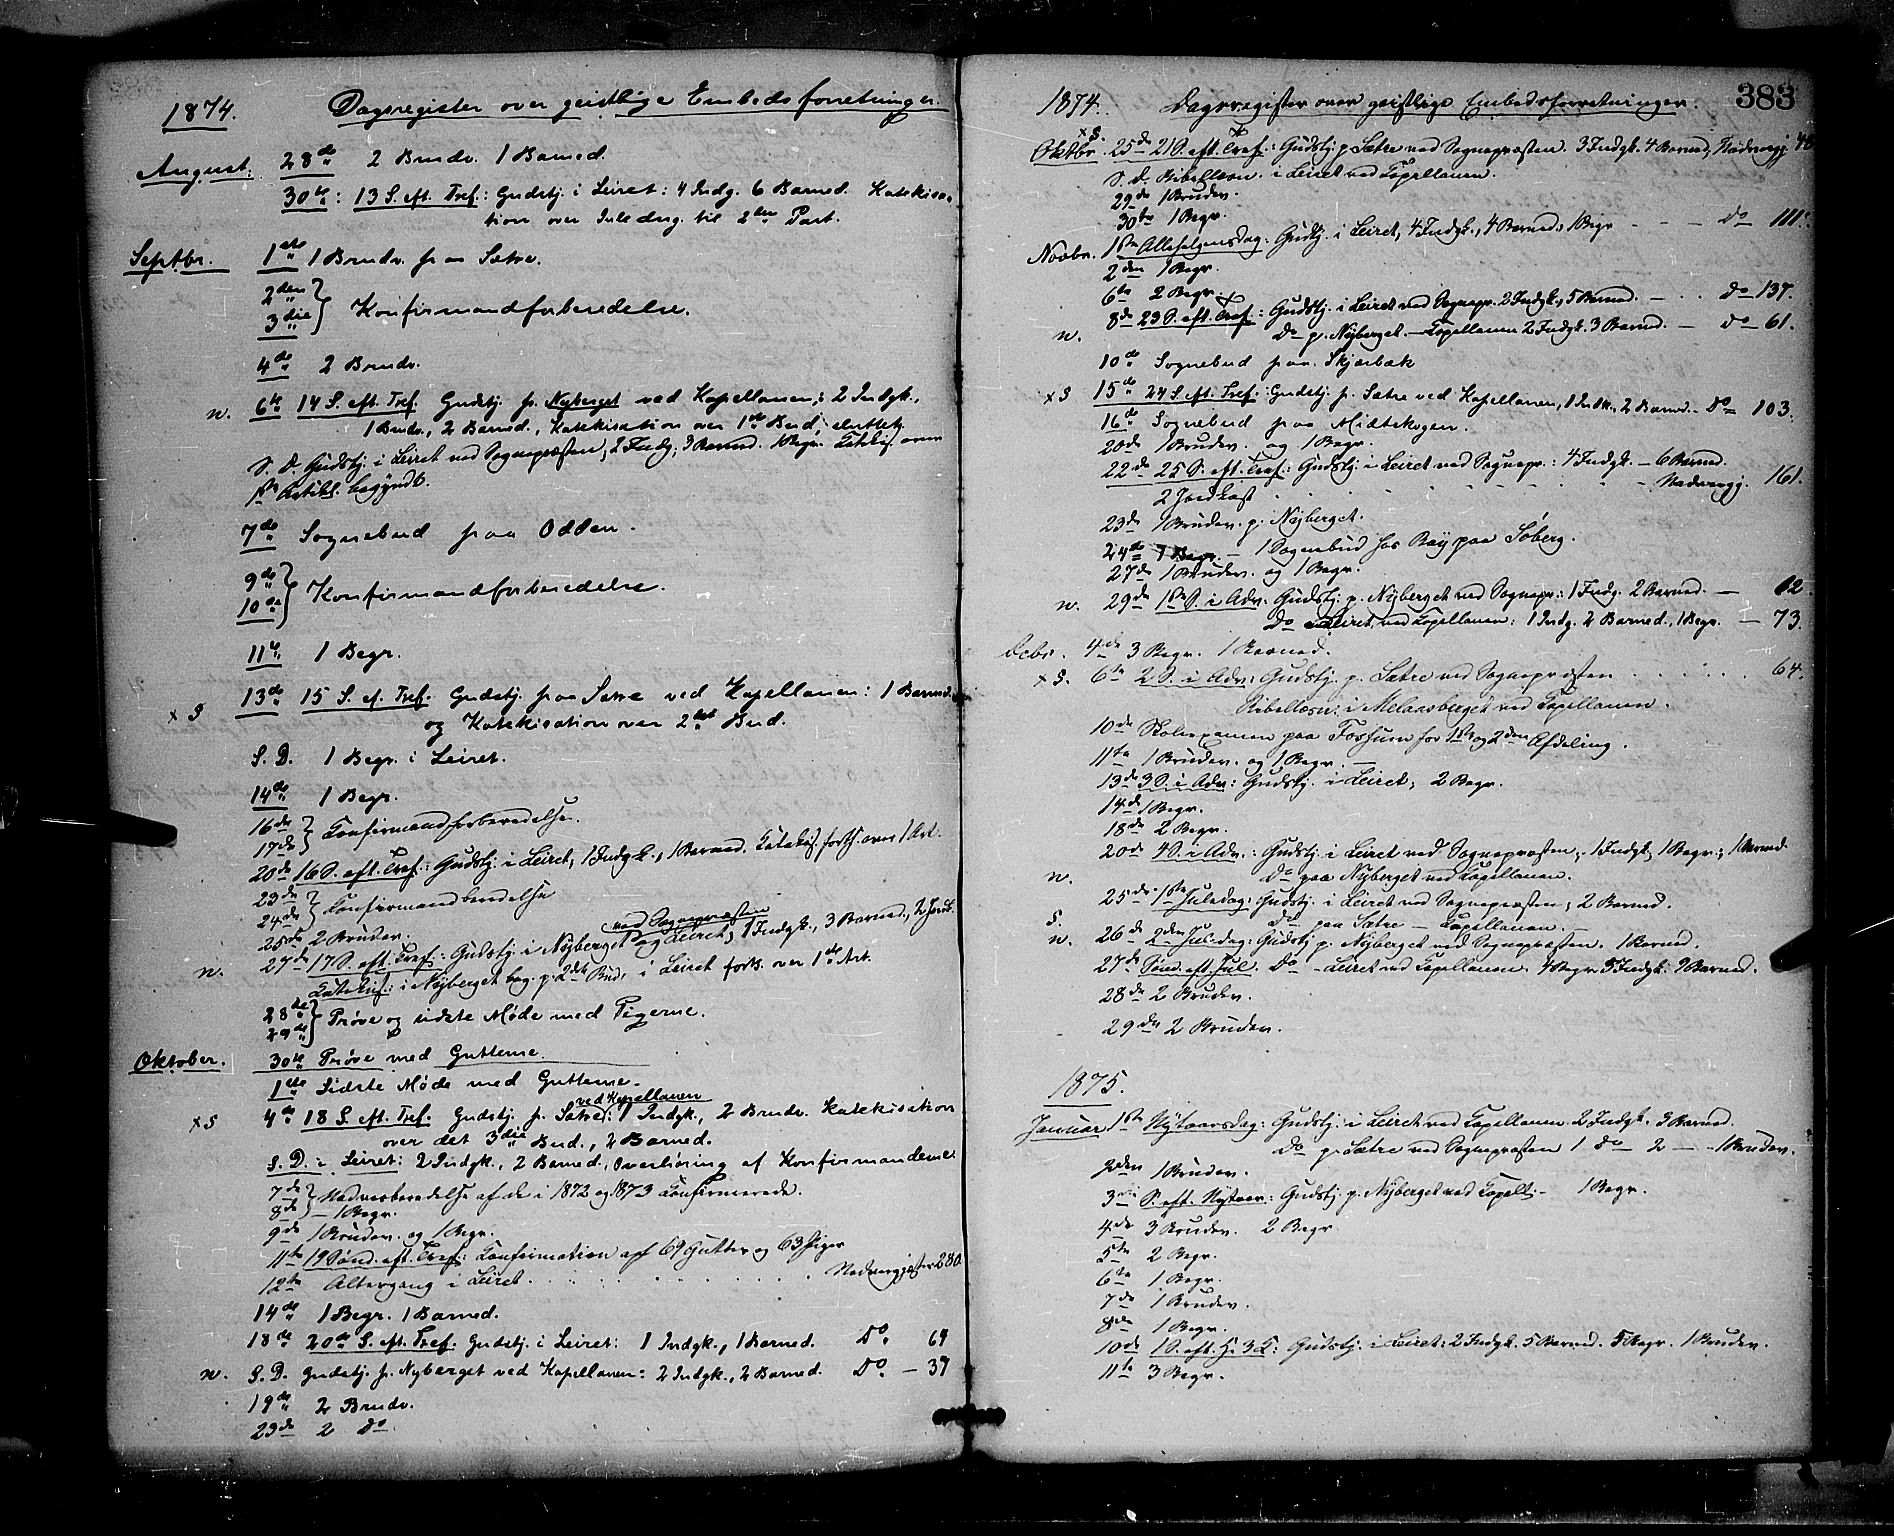 1874. Dagsregister over geistlige Embedsforretninger.
August. 28de 2 Brudv. 1 Barned.
30te: 13 S. eft. Tref: Gudstj. i Leiret: 4 Indg. 6 Barned. Katekisa-
tion over Inledng. til 2den Part.
Septbr. 1ste 1 Brudv. paa Sætre.
2den
3die } Konfirmandforberedelse.
4de 2 Brudv.
n. 6te 14 S. eft. Tref. Gudstj. p. Nyberget ved Kapellanen; 2 Indgk.,
1 Brudv., 2 Barned., Katekisation over 1ste Bud,
S. D. Gudstj. i Leiret ved Sognepræsten, 2 Indg., 3 Barned. 1 Begr. Katekis. over
1ste Artikl. begyndt.
7de Sognebud paa Odden.
9de
10de } Konfirmandforberedelse.
11te 1 Begr.
x S 13de 15 S. ef. Tref. Gudstj. paa Sætre ved Kapellanen: 1 Barned.
og Katekisation over 2det Bud.
S. D. 1 Begr. i Leiret.
14de 1 Begr.
16de
17de } Konfirmandforberedelse.
20de 16 S. eft. Tref.: Gudstj. i Leiret, 1 Indgk., 1 Barned. Katekis. forts. over 1 Art.
23de
24de } Konfirmandberedelse
25de 2 Brudev.
ved Sognepræsten
n. 27de 17 S. eft. Tref.: Gudstj. i Nyberget og Leiret; 1 Indgk., 3 Barned., 2 Jordk.
Katekis.: i Nyberget beg. p. 2det Bud, i Leiret forts. over 1ste Art.
28de
29de } Prøve og sidste Møde med Pigerne.
30te Prøve med Gutterne.
Oktober. 1ste Sidste Møde med Gutterne.
ved Kapellanen
x S 4de 18 S. eft. Tref. Gudstj. p. Sætre: 1 Indgk., 2 Brudv. Katekisation
over det 3die Bud., 2 Barned.
S. D. i Leiret: 2 Indgk., 2 Barned., Overhøring af Konfirmanderne.
7de } Nadverberedelse af de i 1872 og 1873 Konfirmerede.
8de } - 1 Begr.
9de 1 Brudev. og 1 Begr.
11te 19 Sønd. eft. Tref.: Konfirmation af 69 Gutter og 63 Piger
12te Altergang i Leiret. Nadvergjæster 280
14de 1 Begr. 1 Barned.
18de 20de S. eft. Tref. Gudstj. i Leiret: 1 Indgk., 1 Barned. Do 69
n. S. D. Gudstj. p. Nyberget ved Kapellanen: 2 Indgk., 2 Barned. Do - 39
19de 2 Brudv.
23de 2 Do
383
1874. Dagsregister over geistlige Embedsforretninger.
x S. Oktbr. 25de 21 S. eft. Tref.: Gudstj. p. Sætre ved Sognepræsten. 3 Indgk. 4 Barned, Nadvergj. 48
S. D. Bibellæsn. i Leiret ved Kapellanen.
29de 1 Brudev.
30te 1 Begr.
Novbr. 1ste Allehelgensdag. Gudstj. i Leiret, 4 Indgk., 4 Barned, 1 Begr - - - Do 111.
2den 1 Begr.
6te 2 Begr.
8de 23 S. eft. Tref.: Gudstj. i Leiret ved Sognepr. 2 Indgk., 5 Barned. - Do 137.
n. Do p. Nyberget - Kapellanen 2 Indgk. 3 Barned. - Do 61.
10de Sognebud paa Skjærbæk
x S 15de 24 S. eft. Tref.: Gudstj. p. Sætre ved Kapellanen, 1 Indk., 2 Barned. - Do 103.
16de Sognebud paa Midtskogen.
20de 1 Brudev. og 1 Begr.
22de 25 S. eft. Tref.: Gudstj. i Leiret ved Sognepr.: 4 Indgk. - 6 Barned.
2 Jordkast - Nadvergj. 161.
23de 1 Brudev. p. Nyberget.
24de 1 Begr. - 1 Sognebud hos Roy paa Søberg.
27de 1 Brudev. og 1 Begr.
n. 29de 1ste S. i Adv: Gudstj. p. Nyberget ved Sognepr.: 1 Indg. 2 Barned. - 62
Do Leiret, ved Kapellanen: 1 Indg. 2 Barned., 1 Begr. - 73.
Dcbr. 4de 3 Begr. 1 Barned.
x S. 6te 2 S. i Adv: Gudstj. p. Sætre ved Sognepræsten 64.
Bibellæsn: i Melaasberget ved Kapellanen.
10de Skolexamen paa Fossum for 1ste og 2den Afdeling.
11te 1 Brudev. og 1 Begr. -
13de 3 S. i Adv: Gudstj. i Leiret; 2 Begr.
14de 1 Begr.
18de 2 Begr.
20de 4 S. i Adv.: Gudstj. i Leiret ved Sognepræsten; 1 Indgk., 1 Begr., 1 Barned.
n. Do paa Nyberget ved Kapellanen.
25de 1ste Juledag: Gudstj. i Leiret ved Sognepræsten; 2 Barned.
S. Do paa Sætre - Kapellanen. -
n. 26de 2den Juledag: Gudstj. p. Nyberget ved Sognepræsten. 1 Barned.
27de Sønd. eft. Jul. Do - Leiret ved Kapellanen. 4 Begr. 3 Indgk. 9 Barned.
28de 2 Brudev.
29de 2 Brudev.
1875.
Januar 1ste Nytaarsdag: Gudstj. i Leiret ved Kapellanen. 2 Indgk. 3 Barned.
Do p. Sætre ved Sognepræsten 1 Do 2 - - 1 Brudev.
2den 1 Brudev.
3die S. eft. Nytaar: Gudstj. p. Nyberget ved Kapell. - 1 Begr.
4de 3 Brudev. 2 Begr
5te 2 Begr.
6te 1 Begr.
7de 1 Brudev.
8de 1 Begr.
10de 1 S. eft. H. 3 K: Gudstj. i Leiret: 2 Indgk. 5 Barned. 5 Begr. 1 Brudev.
11te 3 Begr.